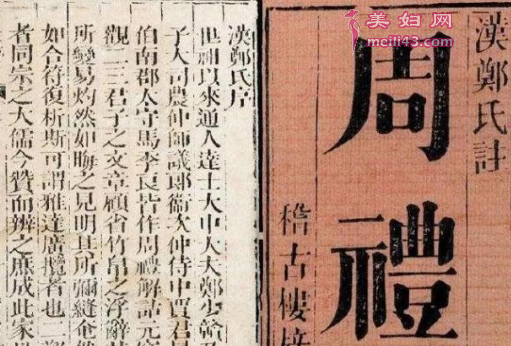 美妇网
meili43.com
漢鄭氏註
周禮
稽古樓
漢鄭氏序
世祖以來通人達士大中大夫鄭少贛及
子大司農仲師議郎衛次仲侍中賈君
伯南郡太守馬季長皆作周禮解詁元
觀二三君子之文章顧省竹帛之浮辭其
所變易灼然如晦之見明其所彌縫奄
如合符復析斯可謂雅達廣攬者也二
者同宗之大儒今贊而辨之庶成此家